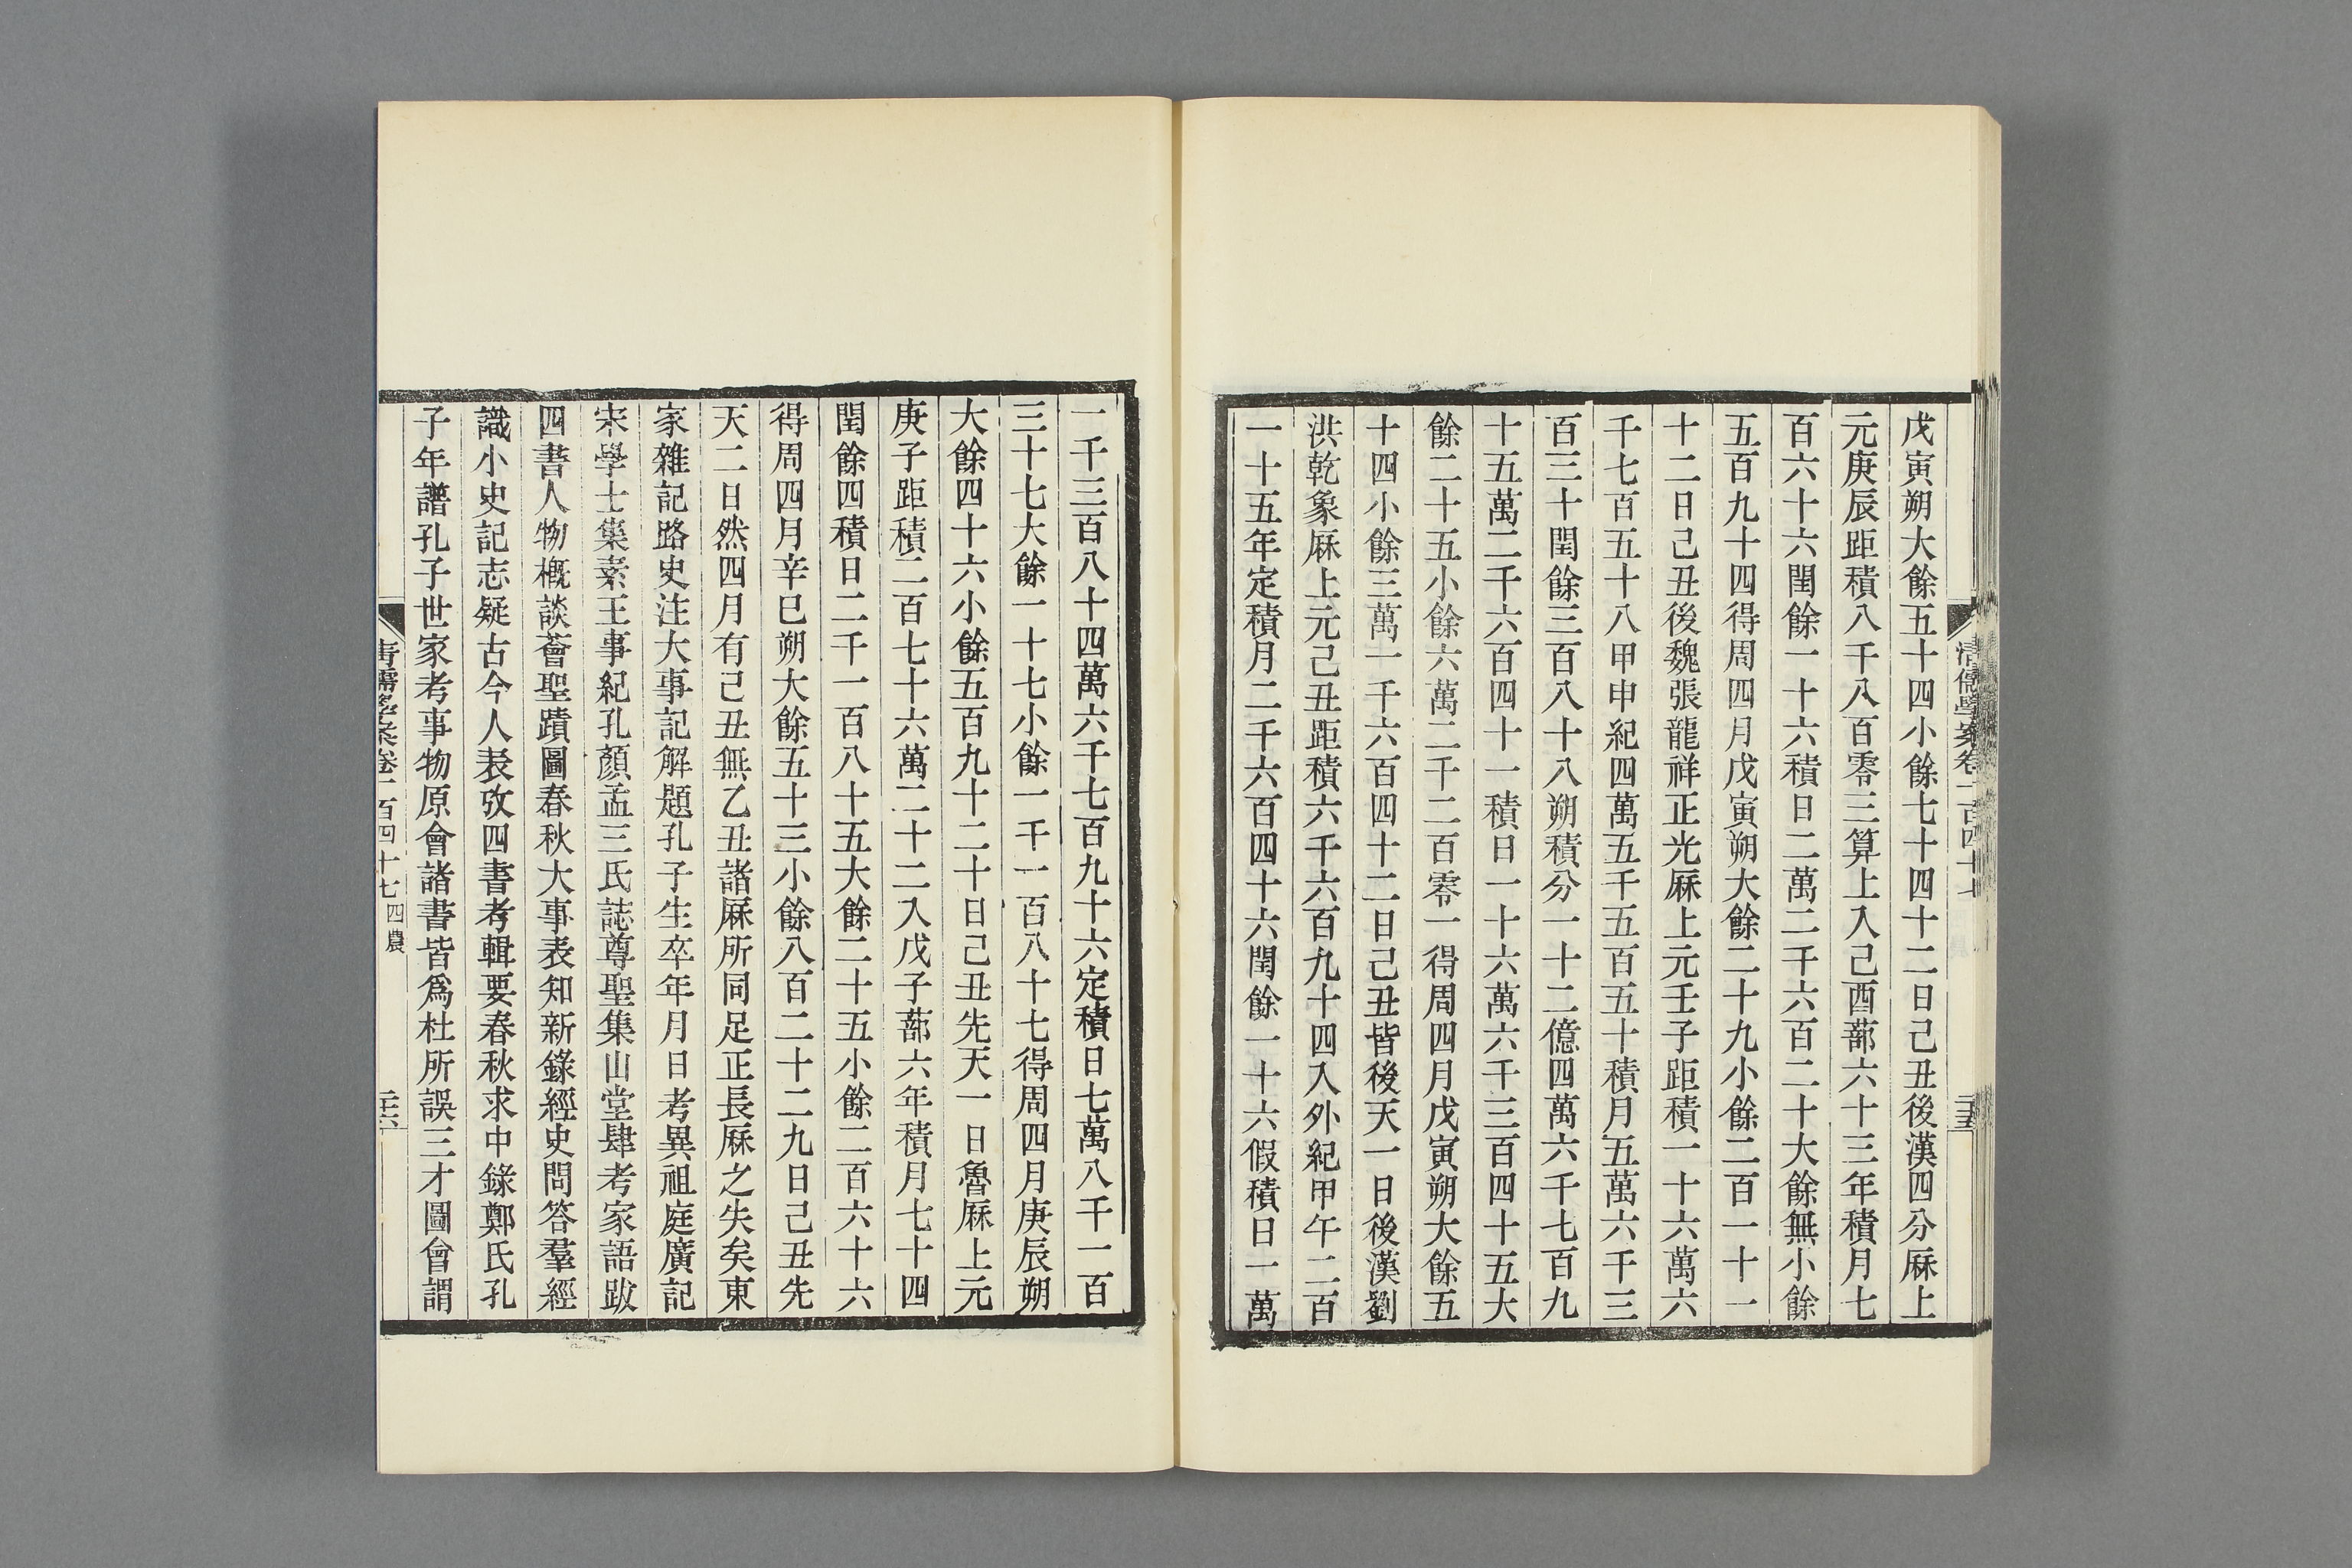 戊寅朔大餘五十四小餘七十四十二日己丑後漢四分厤上
元庚辰距積八千八百零三算上入己酉蔀六十三年積月七
百六十六閏餘一十六積日二萬二千六百二十大餘無小餘
五百九十四得周四月戊寅朔大餘二十九小餘二百一十一
十二日己丑後魏張龍祥正光厤上元壬子距積一十六萬六
千七百五十八甲申紀四萬五千五百五十積月五萬六千三
百三十閏餘三百八十八朔積分一十二億四萬六千七百九
十五萬二千六百四十一積日一十六萬六千三百四十五大
餘二十五小餘六萬二千二百零一得周四月戊寅朔大餘五
十四小餘三萬一千六百四十二日己丑皆後天一日後漢劉
洪乾象厤上元己丑距積六千六百九十四入外紀甲午二百
一十五年定積月二千六百四十六閏餘一十六假積日一萬
清儒學案卷一百四十七
三十五
一千三百八十四萬六千七百九十六定積日七萬八千一百
三十七大餘一十七小餘一千一百八十七得周四月庚辰朔
大餘四十六小餘五百九十二十日己丑先天一日魯厤上元
庚子距積二百七十六萬二十二入戊子蔀六年積月七十四
閏餘四積日二千一百八十五大餘二十五小餘二百六十六
得周四月辛巳朔大餘五十三小餘八百二十二九日己丑先
天二日然四月有己丑無乙丑諸厤所同足正長厤之失矣東
家雜記路史注大事記解題孔子生卒年月日考異祖庭廣記
宋學士集素王事紀孔顏孟三氏誌尊聖集山堂肆考家語跋
四書人物槪談薈聖蹟圖春秋大事表知新錄經史問答羣經
識小史記志疑古今人表攷四書考輯要春秋求中錄鄭氏孔
子年譜孔子世家考事物原會諸書皆爲杜所誤三才圖會謂
清儒學案卷一百四十七 四農
三十六